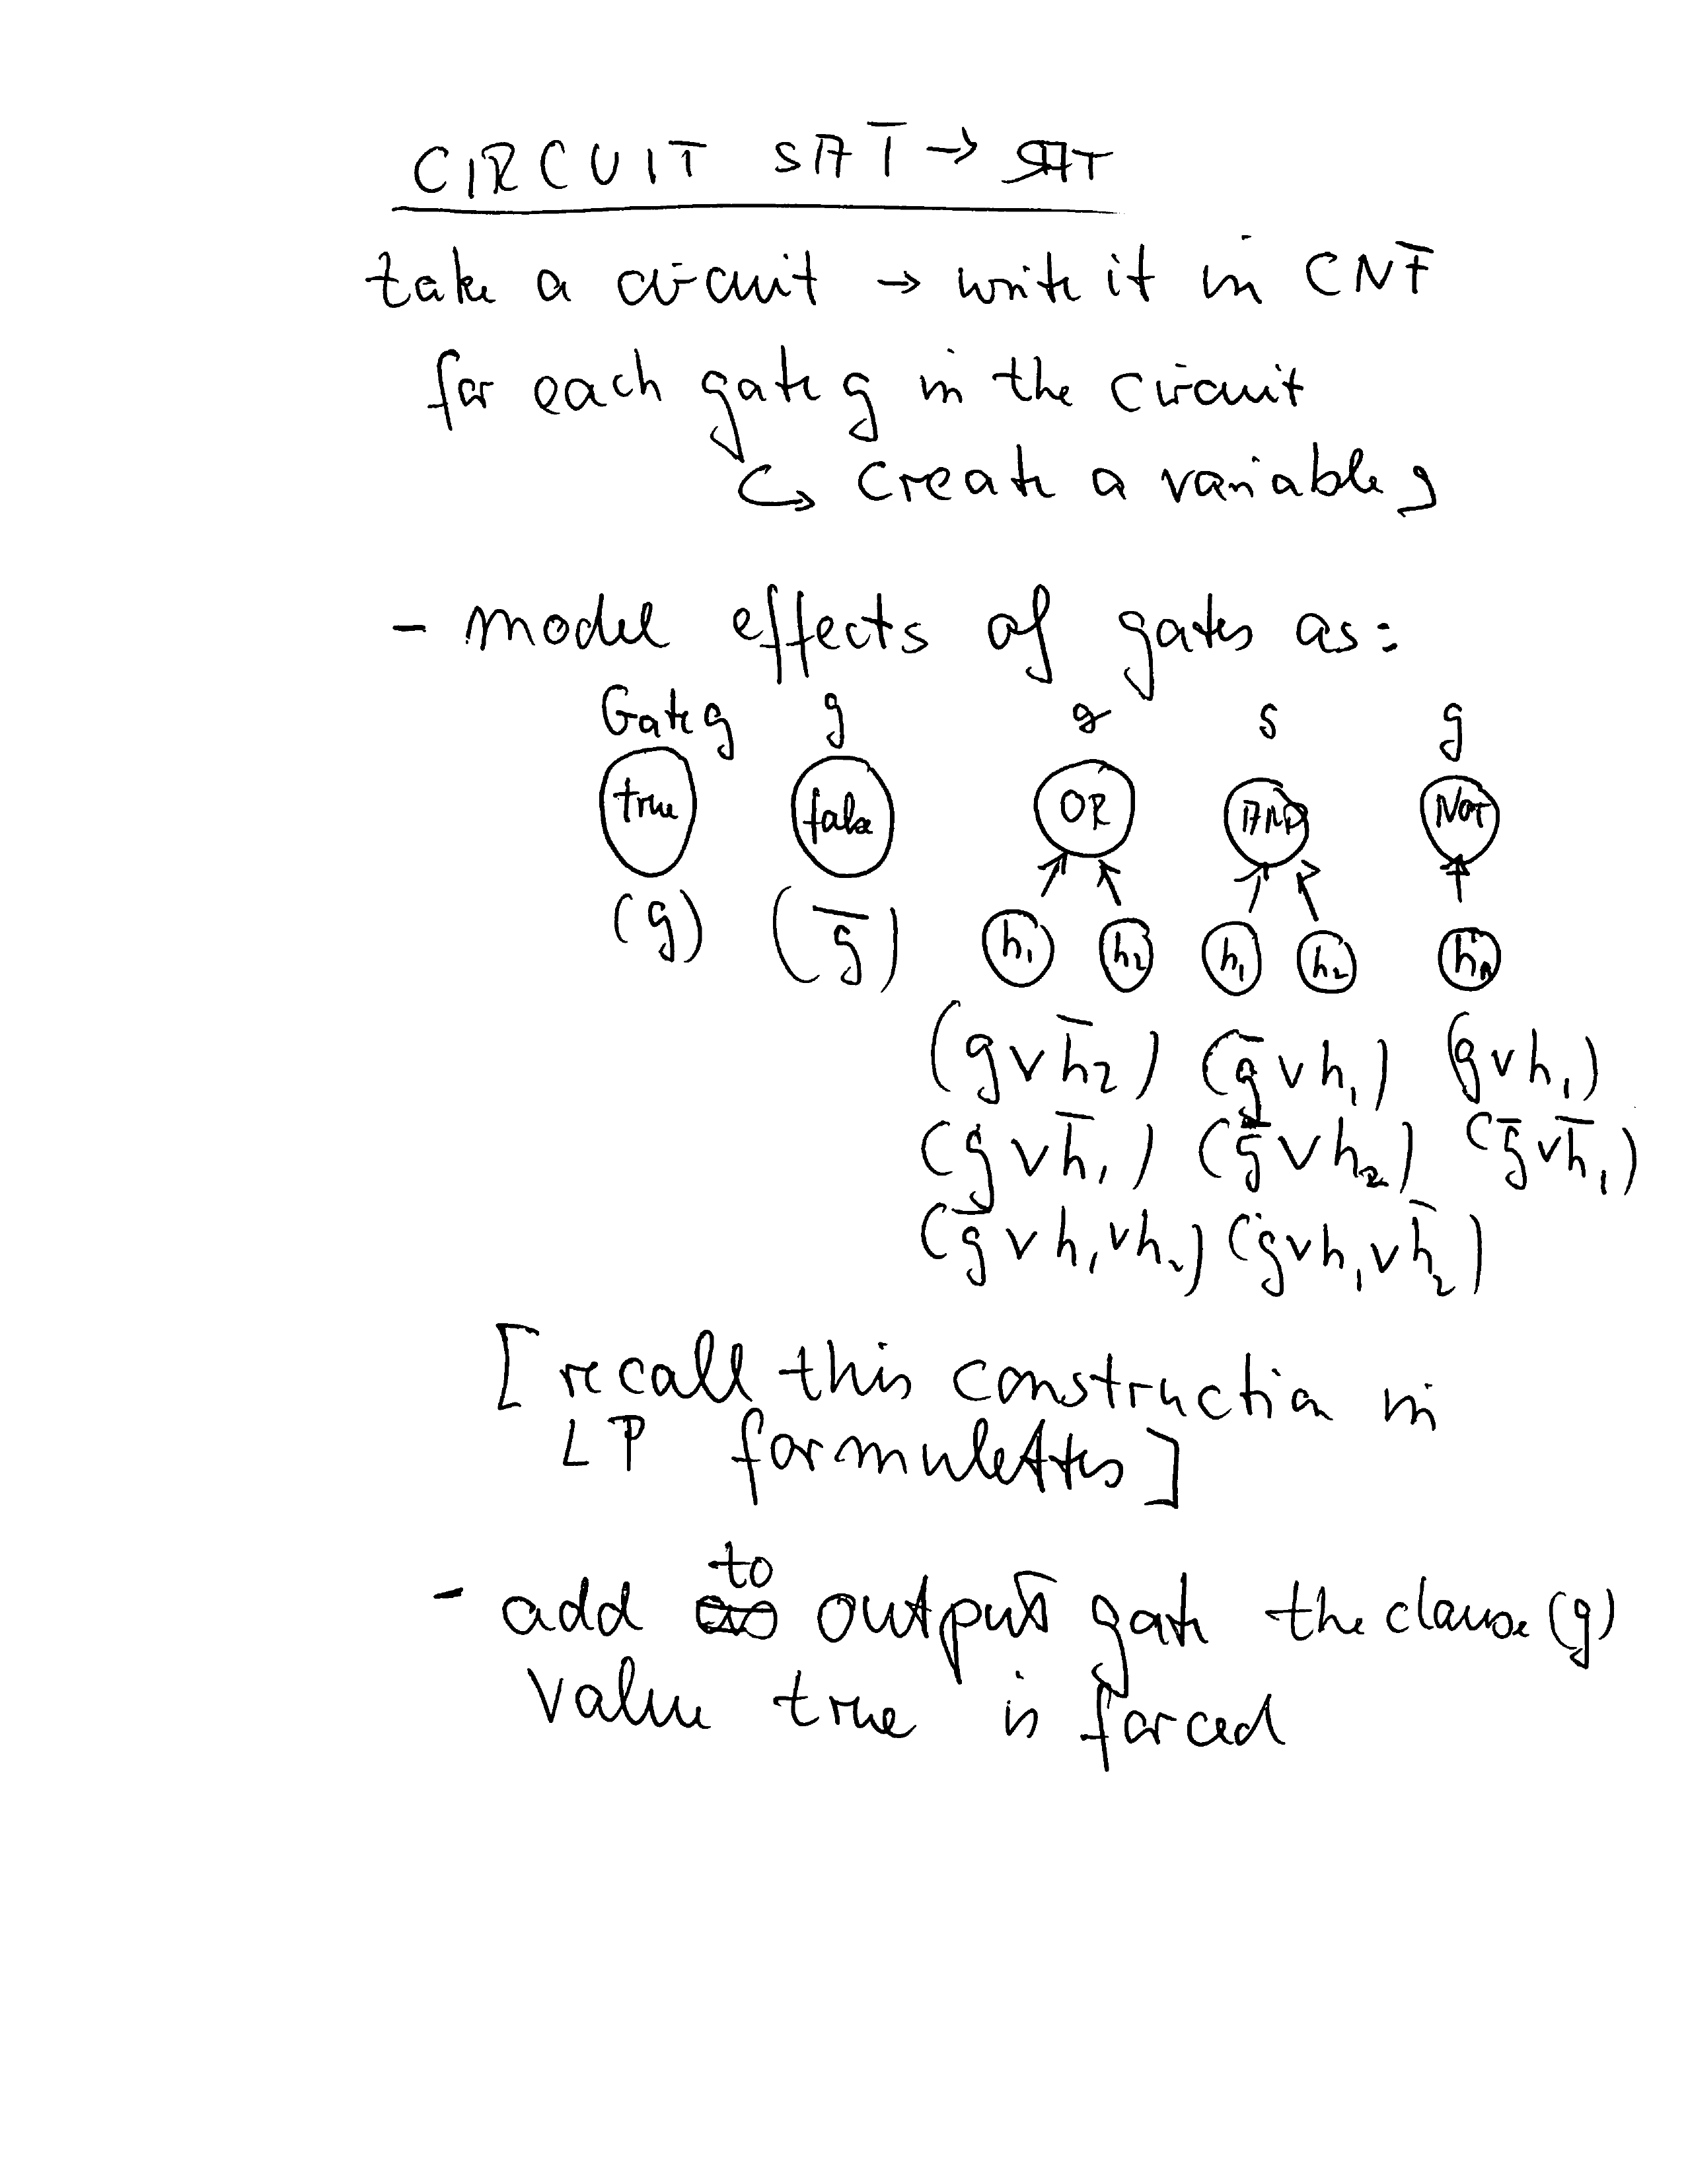 CIRCUIT SAT → SAT
take a circuit → write it in CNF
for each gate g in the circuit
↪ create a variable g
- model effects of gates as:
Gate g g g g g
true false OR AND NOT
(g) (g̅) h₁ h₂ h₁ h₂ h₁
(g ∨ h̅₂) (g̅ ∨ h₁) (g ∨ h₁)
(g ∨ h̅₁) (g̅ ∨ h₂) (g̅ ∨ h̅₁)
(g̅ ∨ h₁ ∨ h₂) (g ∨ h₁ ∨ h̅₂)
[recall this construction in
LP formulettes]
- add to output gate the clause (g)
value true is forced